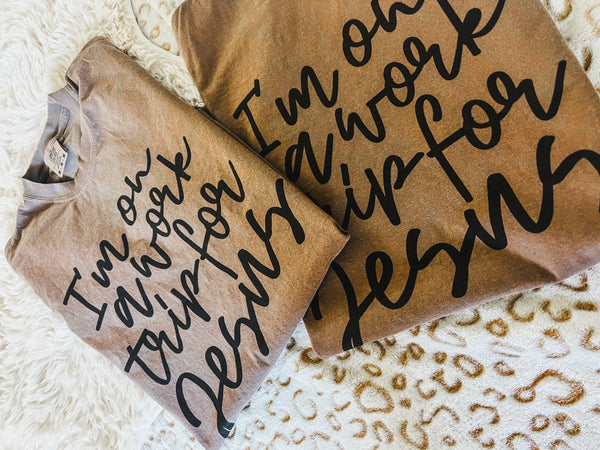 I'm on
a work
trip for
Jesus
I'm on
a work
trip for
Jesus